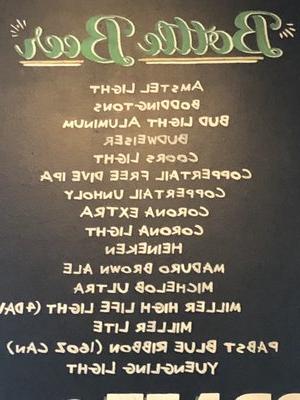 Bottle Beer
AMSTEL LIGHT
BODDINGTONS
BUD LIGHT ALUMINUM
BUDWEISER
COORS LIGHT
COPPERTAIL FREE DIVE IPA
COPPERTAIL UNHOLY
CORONA EXTRA
CORONA LIGHT
HEINEKEN
MADURO BROWN ALE
MICHELOB ULTRA
MILLER HIGH LIFE LIGHT (4DAY
MILLER LITE
PABST BLUE RIBBON (16OZ CAN)
YUENGLING LIGHT